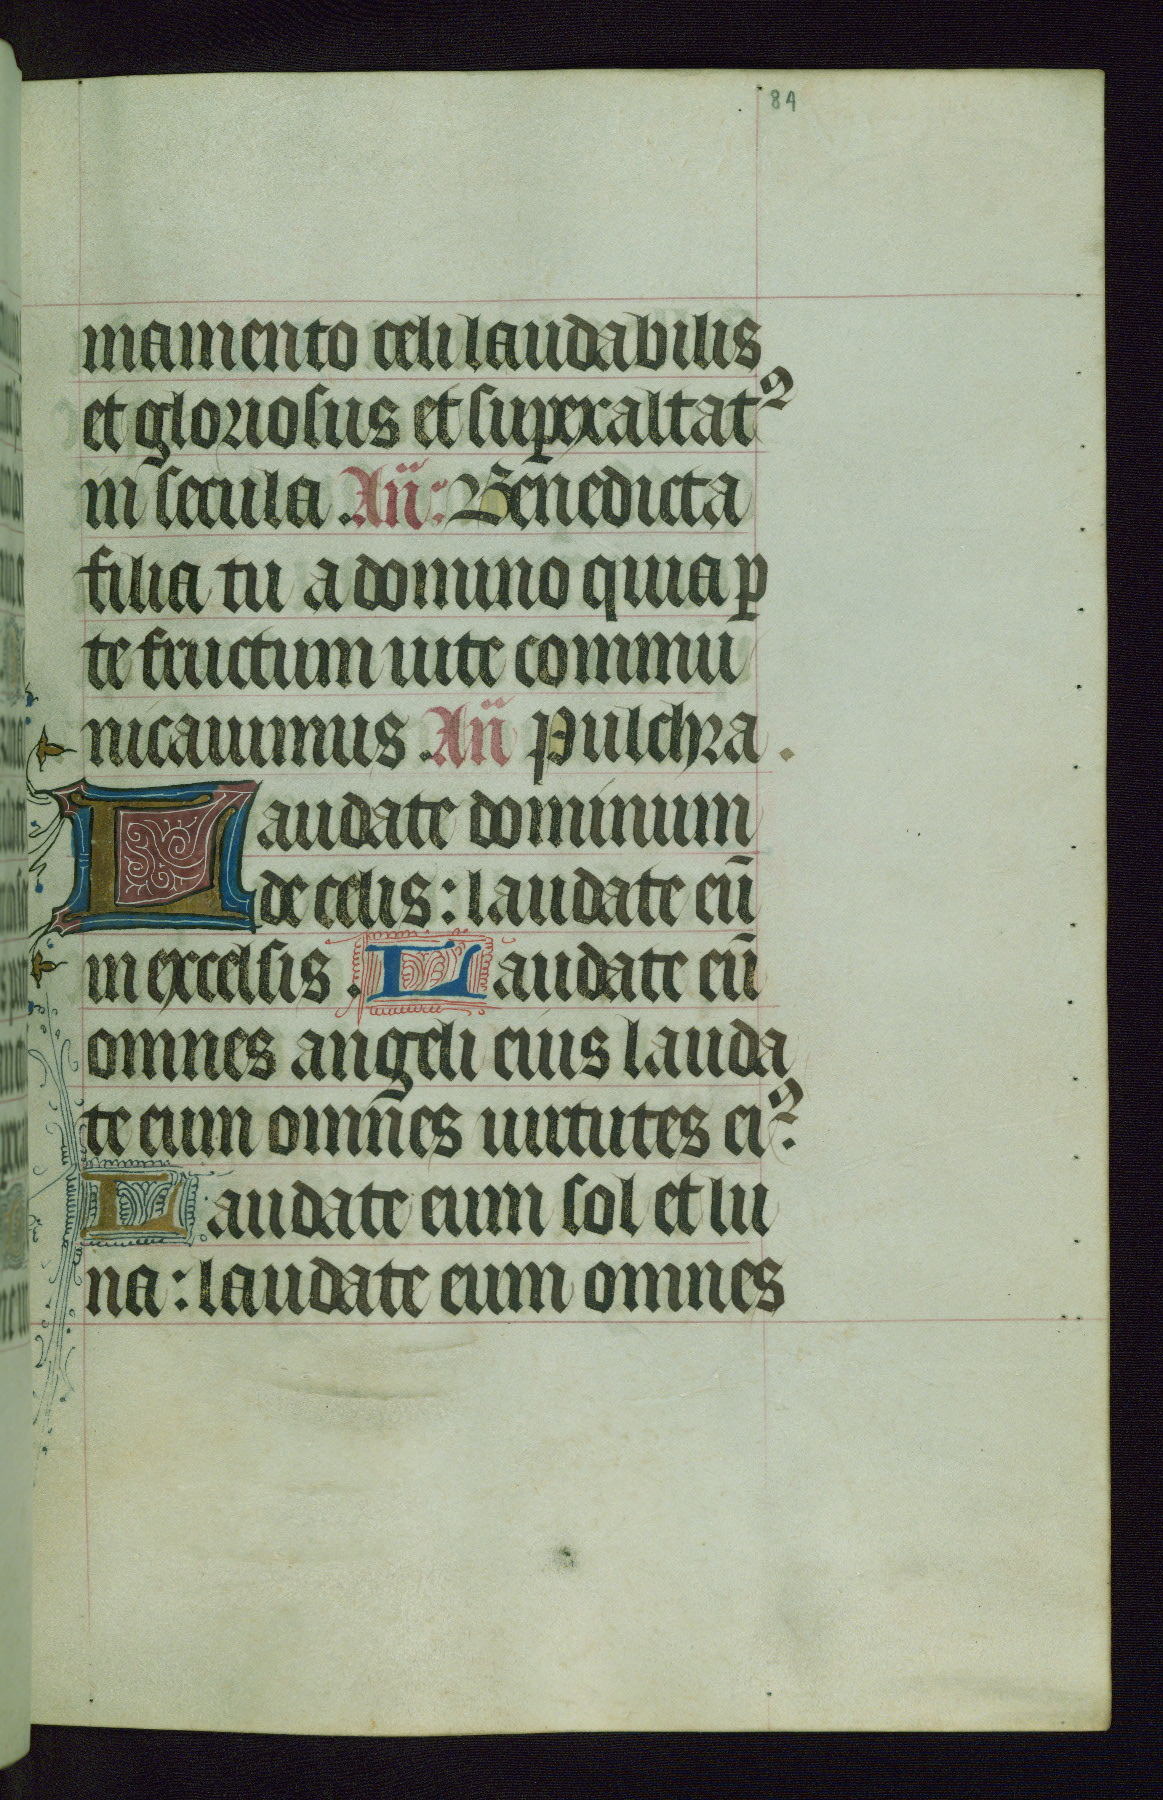 84
mamento celi laudabilis
et gloriosus et suꝑexaltatꝰ
in secula. An̄: Benedicta
filia tu a domino quia ꝑ
te fructum uite commu
nicauimus. An̄ Pulchra.
Laudate dominum
de celis: laudate eū
in excelsis. Laudate eū
omnes angeli eius lauda
te eum omnes uirtutes eiꝰ.
Laudate eum sol et lu
na: laudate eum omnes